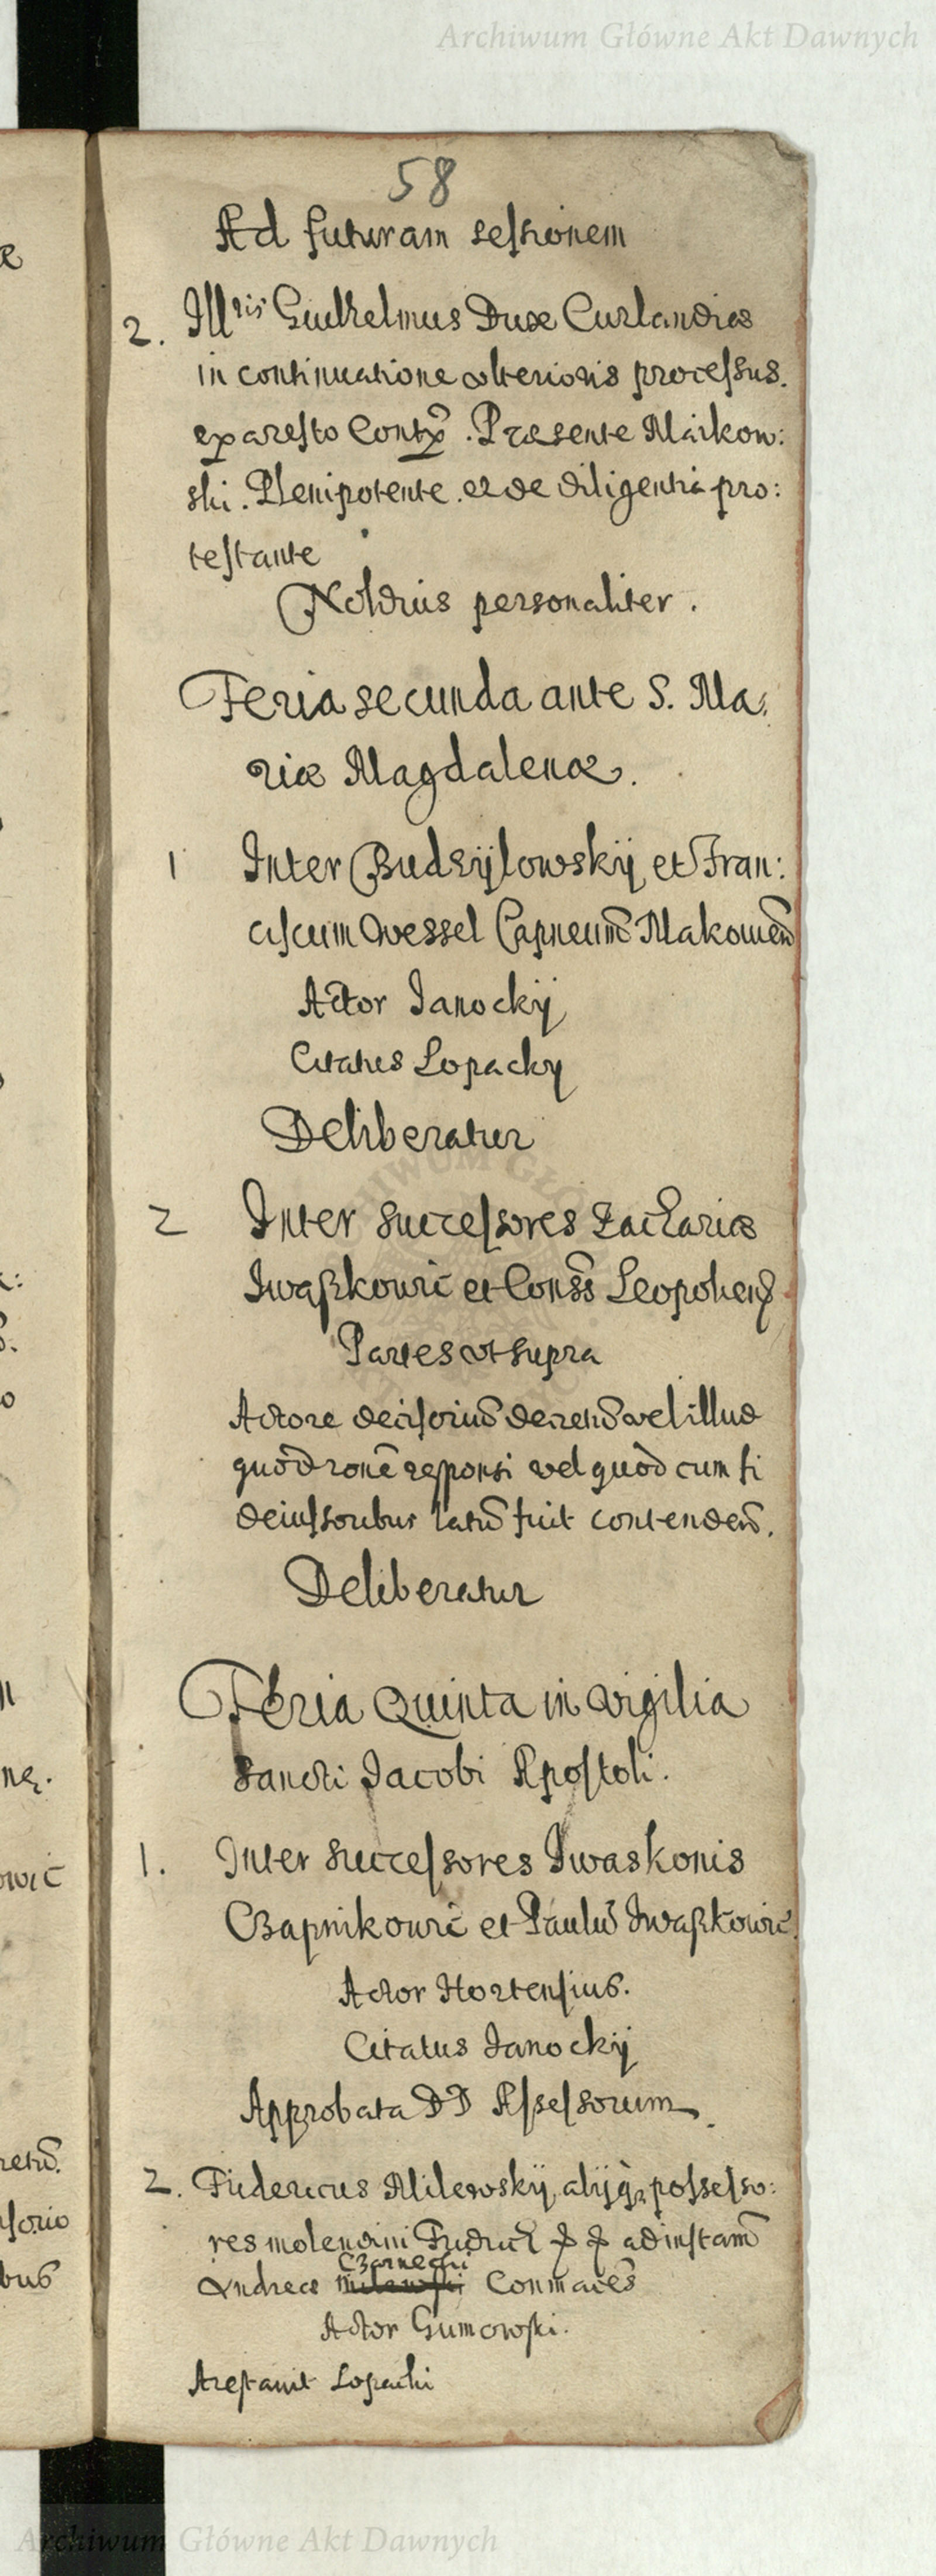 Archiwum Główne Akt Dawnych
58
Ad futuram sessionem
2. Illris Guilhelmus Dux Curlandiæ
in continuatione vlterioris processus.
ex aresto Contx. Præsente Maikow:
ski. Plenipotente. et de diligentia pro:
testante
Noldius personaliter.
Feria secunda ante S. Ma:
riæ Magdalenæ.
1 Inter Budzijlowskij et Fran:
ciscum Wessel Capneum Makowen
Actor Janockij
Citatus Lopacky
Deliberatur
2 Inter Successores Zachariæ
Iwaszkowic et Conss Leopoliens
Partes vt supra
Actore decisoriu decretu vel illud
quod rone responsi vel quòd cum fi
deiussoribus latu fuit contenden.
Deliberatur
Feria Quinta in vigilia
Sancti Jacobi Apostoli.
1. Inter Successores Iwaskonis
Czapnikowic et Paulu Iwaszkowic.
Actor Hortensius.
Citatus Janockij
Approbata DD Assessorum
2. Fridericus Milewskij, alijq possesso:
res molendini ad instam
Czarnecki
Andreæ Milewski Conmaces
Actor Gumowski.
Arestauit Lopacki
Archiwum Główne Akt Dawnych